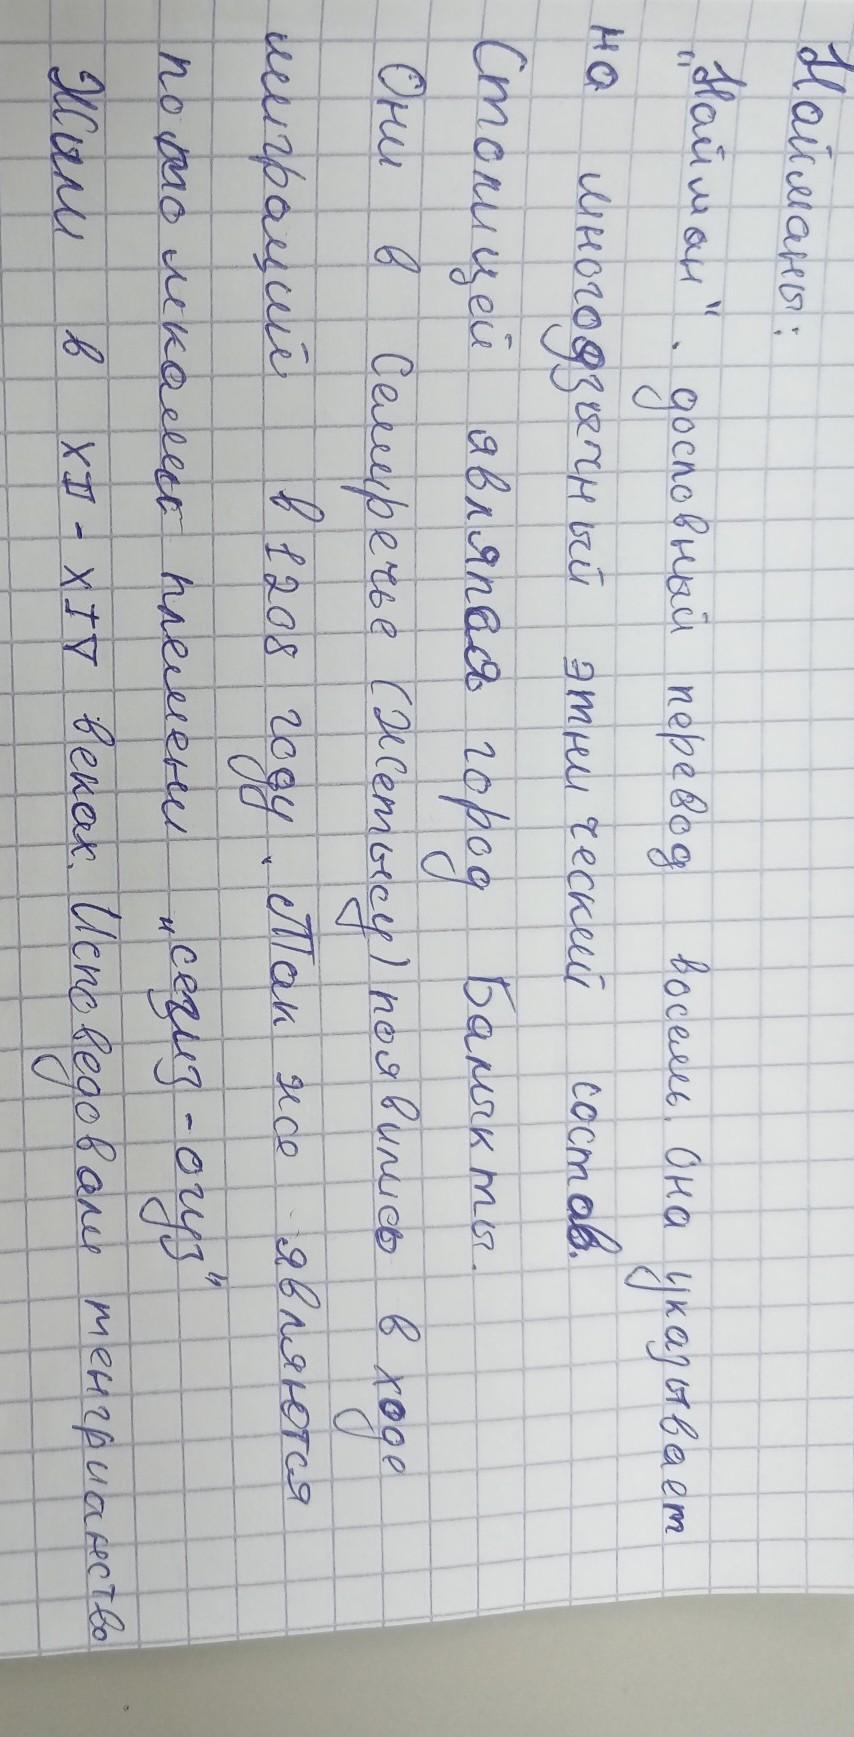 Найманы:
"Найман". дословный перевод восемь. Она указывает
на многоязычный этнический состав.
Столицей являлася город Балыкты.
Они в Семиречье (Жетысу) появились в ходе
миграций в 1208 году. Так же являются
потомками племени "сегиз-огуз"
Жили в XII-XIV веках. Исповедовали тенгрианство